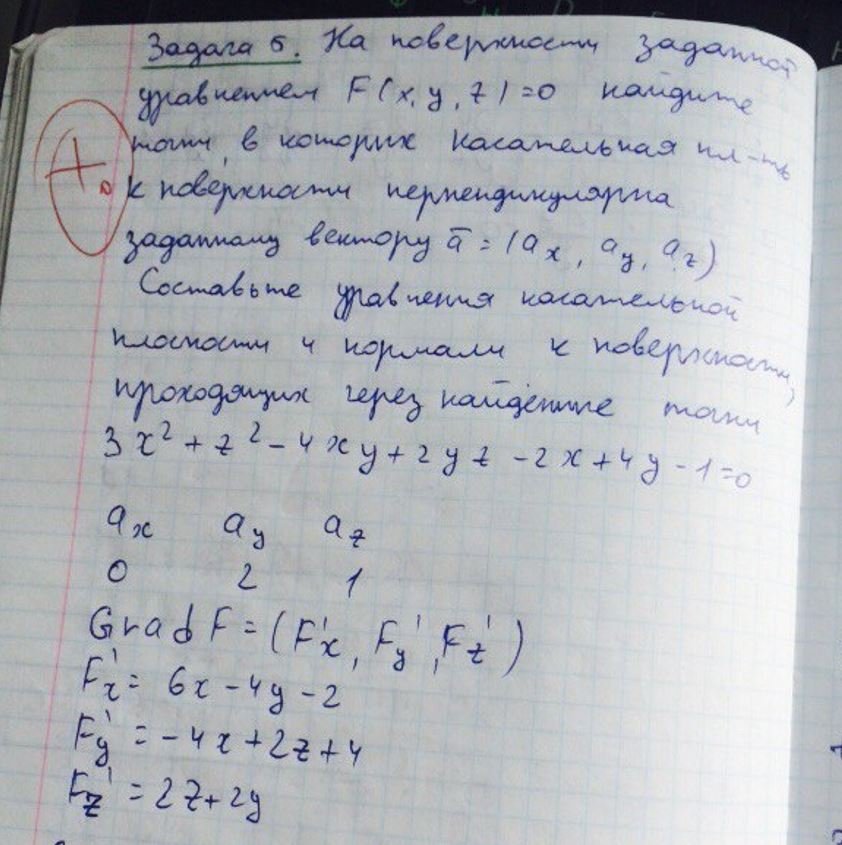 Задача 5. На поверхности заданной
уравнением F(x, y, z)=0 найдите
точки, в которых касательная пл-ть
к поверхности перпендикулярна
заданному вектору a̅ = (ax, ay, az)
Составьте уравнения касательной
плоскости и нормали к поверхности,
проходящих через найденные точки
3x² + z² - 4xy + 2yz - 2x + 4y - 1 = 0
ax ay az
0 2 1
Grad F = (F'x, F'y, F'z)
F'x = 6x - 4y - 2
F'y = -4x + 2z + 4
F'z = 2z + 2y